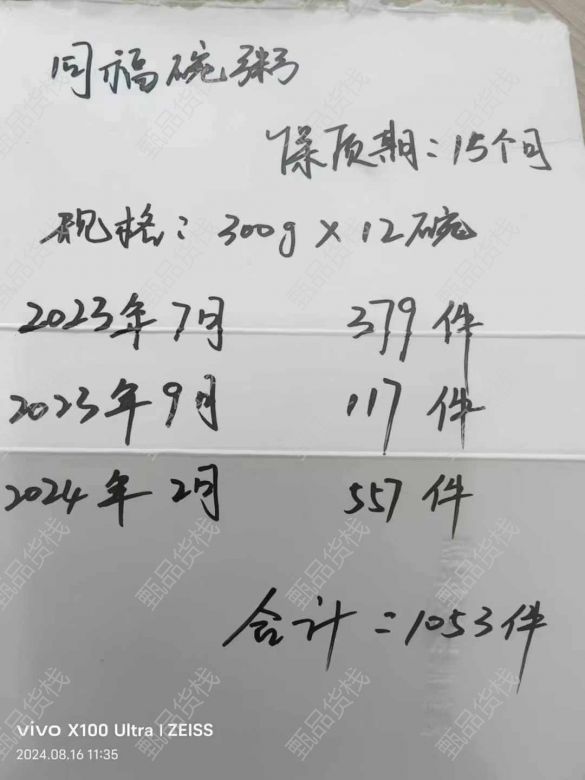 同福碗粥
保质期：15个月
规格：300g×12碗
2023年7月 379件
2023年9月 117件
2024年2月 557件
合计=1053件
vivo X100 Ultra | ZEISS
2024.08.16 11:35
甄品货栈